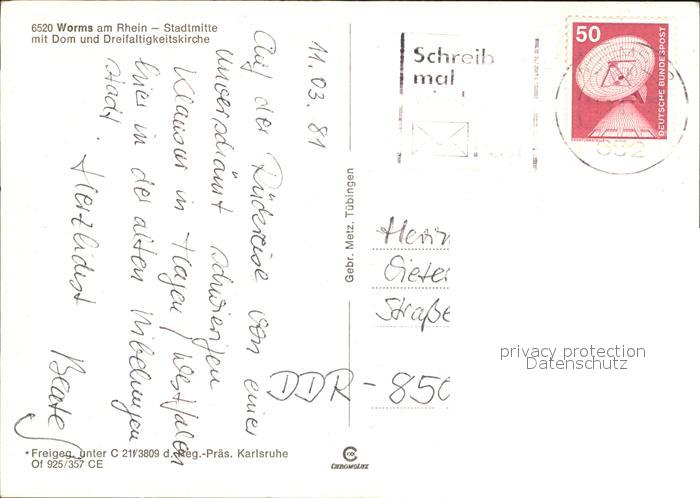 6520 Worms am Rhein – Stadtmitte
mit Dom und Dreifaltigkeitskirche
11.03.81
Auf der Rückreise von einer
schwierigen
Klausur in Hagen/Westfalen
hier in der alten Nibelungen
stadt. Herzlichst
Beate
*Freigeg. unter C 211/3809 d. Reg.-Präs. Karlsruhe
Of 925/357 CE
Gebr. Metz, Tübingen
CHROMOLUX
Schreib
mal
50
DEUTSCHE BUNDESPOST
Herrn
Dieter
Straße
DDR - 850
privacy protection
Datenschutz